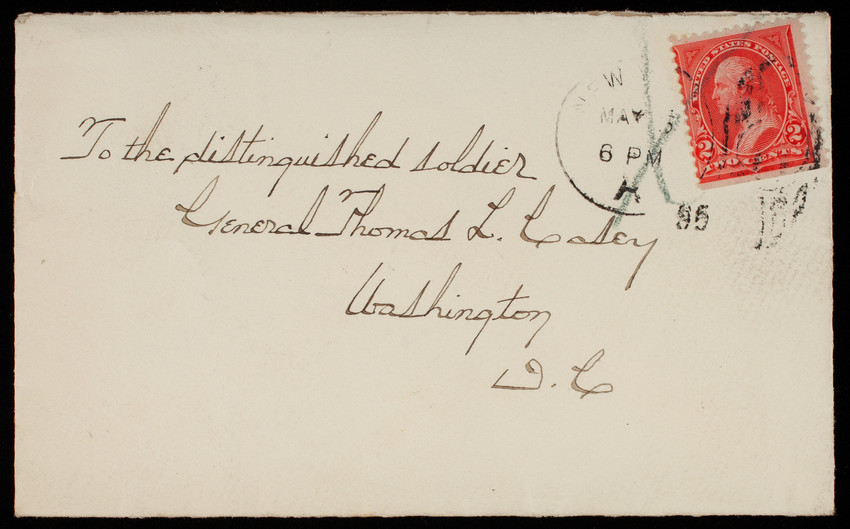 To the distinguished soldier
General Thomas L. Casey
Washington
D. C
NEW
MAY
6 PM
A
95
UNITED STATES POSTAGE
2 TWO CENTS 2